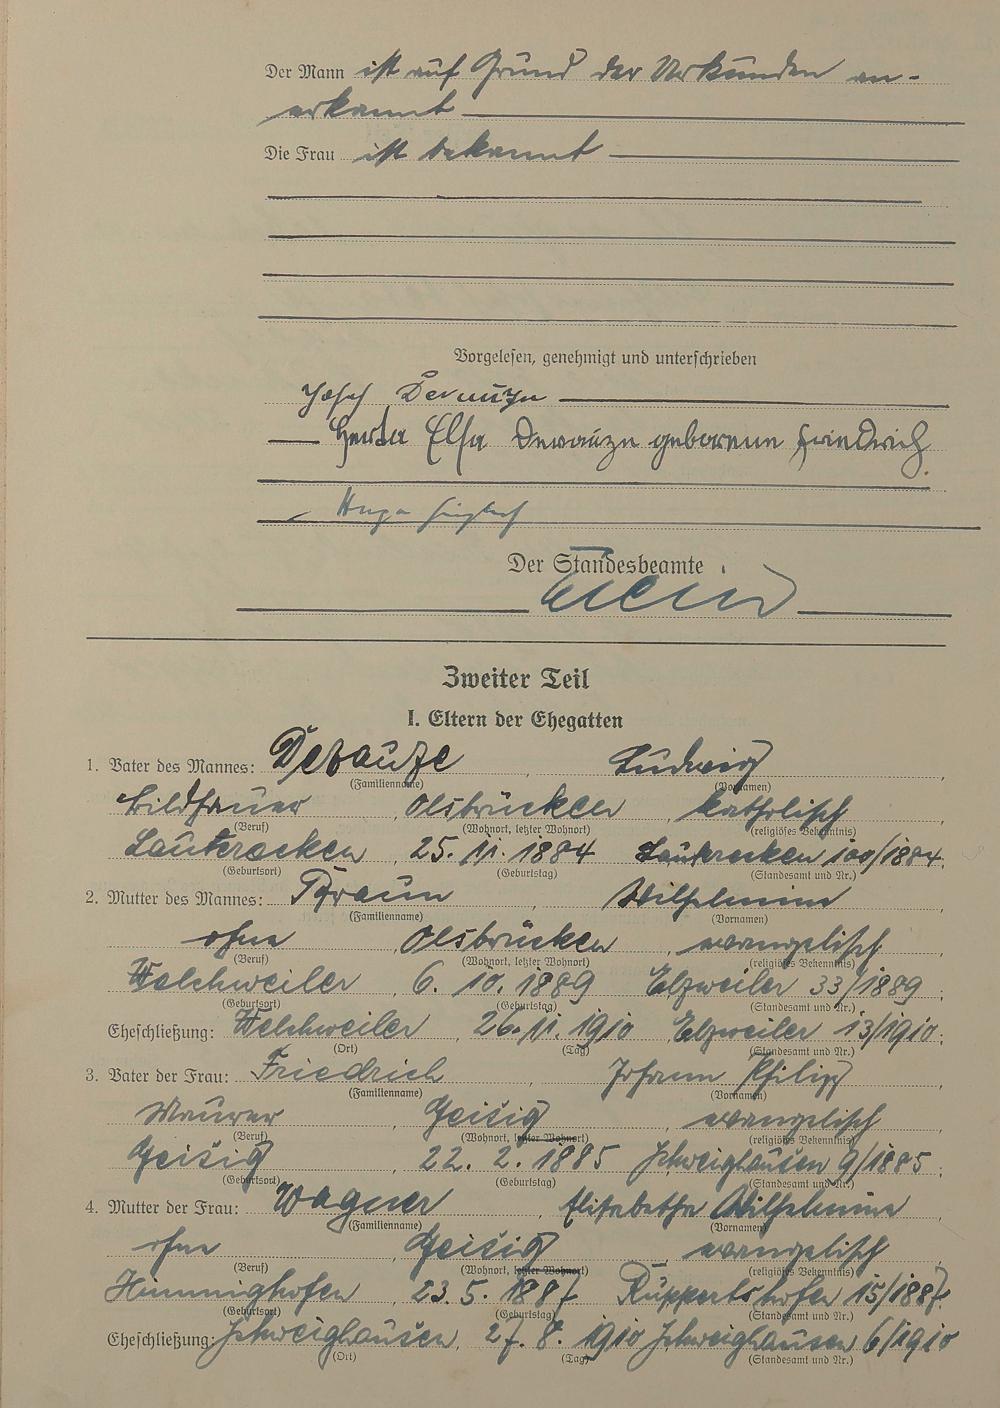 Der Mann ist auf Grund der Urkunden an-
erkannt
Die Frau ist bekannt
Vorgelesen, genehmigt und unterschrieben
Josef Derauze
Herta Elsa Derauze geborene Friedrich.
Hugo
Der Standesbeamte
Zweiter Teil
I. Eltern der Ehegatten
1. Vater des Mannes: Derauze, Ludwig,
(Familienname) (Vornamen)
Bildhauer, Olsbrücken, katholisch
(Beruf) (Wohnort, letzter Wohnort) (religiöses Bekenntnis)
Lauterecken, 25. 11. 1884 Lauterecken 100/1884;
(Geburtsort) (Geburtstag) (Standesamt und Nr.)
2. Mutter des Mannes: Braun, Wilhelmine,
(Familienname) (Vornamen)
ohne, Olsbrücken, evangelisch
(Beruf) (Wohnort, letzter Wohnort) (religiöses Bekenntnis)
Welchweiler, 6. 10. 1889 Elzweiler 33/1889;
(Geburtsort) (Geburtstag) (Standesamt und Nr.)
Eheschließung: Welchweiler, 26. 11. 1910 Elzweiler 13/1910;
(Ort) (Tag) (Standesamt und Nr.)
3. Vater der Frau: Friedrich, Johann Philipp,
(Familienname) (Vornamen)
Maurer, Geisig, evangelisch
(Beruf) (Wohnort, letzter Wohnort) (religiöses Bekenntnis)
Geisig, 22. 2. 1885 Schweighausen 9/1885;
(Geburtsort) (Geburtstag) (Standesamt und Nr.)
4. Mutter der Frau: Wagner, Elisabetha Wilhelmine,
(Familienname) (Vornamen)
ohne, Geisig, evangelisch
(Beruf) (Wohnort, letzter Wohnort) (religiöses Bekenntnis)
Himmighofen, 23. 5. 1887 Ruppertshofen 15/1887
(Geburtsort) (Geburtstag) (Standesamt und Nr.)
Eheschließung: Schweighausen, 27. 8. 1910 Schweighausen 6/1910
(Ort) (Tag) (Standesamt und Nr.)